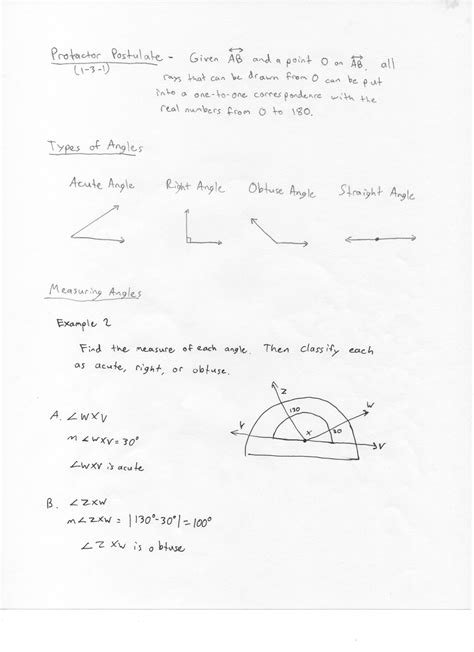 Protactor Postulate - Given AB and a point O on AB, all
(1-3-1)
rays that can be drawn from O can be put
into a one-to-one correspondence with the
real numbers from 0 to 180.
Types of Angles
Acute Angle Right Angle Obtuse Angle Straight Angle
Measuring Angles
Example 2
Find the measure of each angle. Then classify each
as acute, right, or obtuse.
Z
130
W
A. ∠WXV
Y
X
30
V
m∠WXV=30°
∠WXV is acute
B. ∠ZXW
m∠ZXW = |130°-30°|=100°
∠ZXW is obtuse